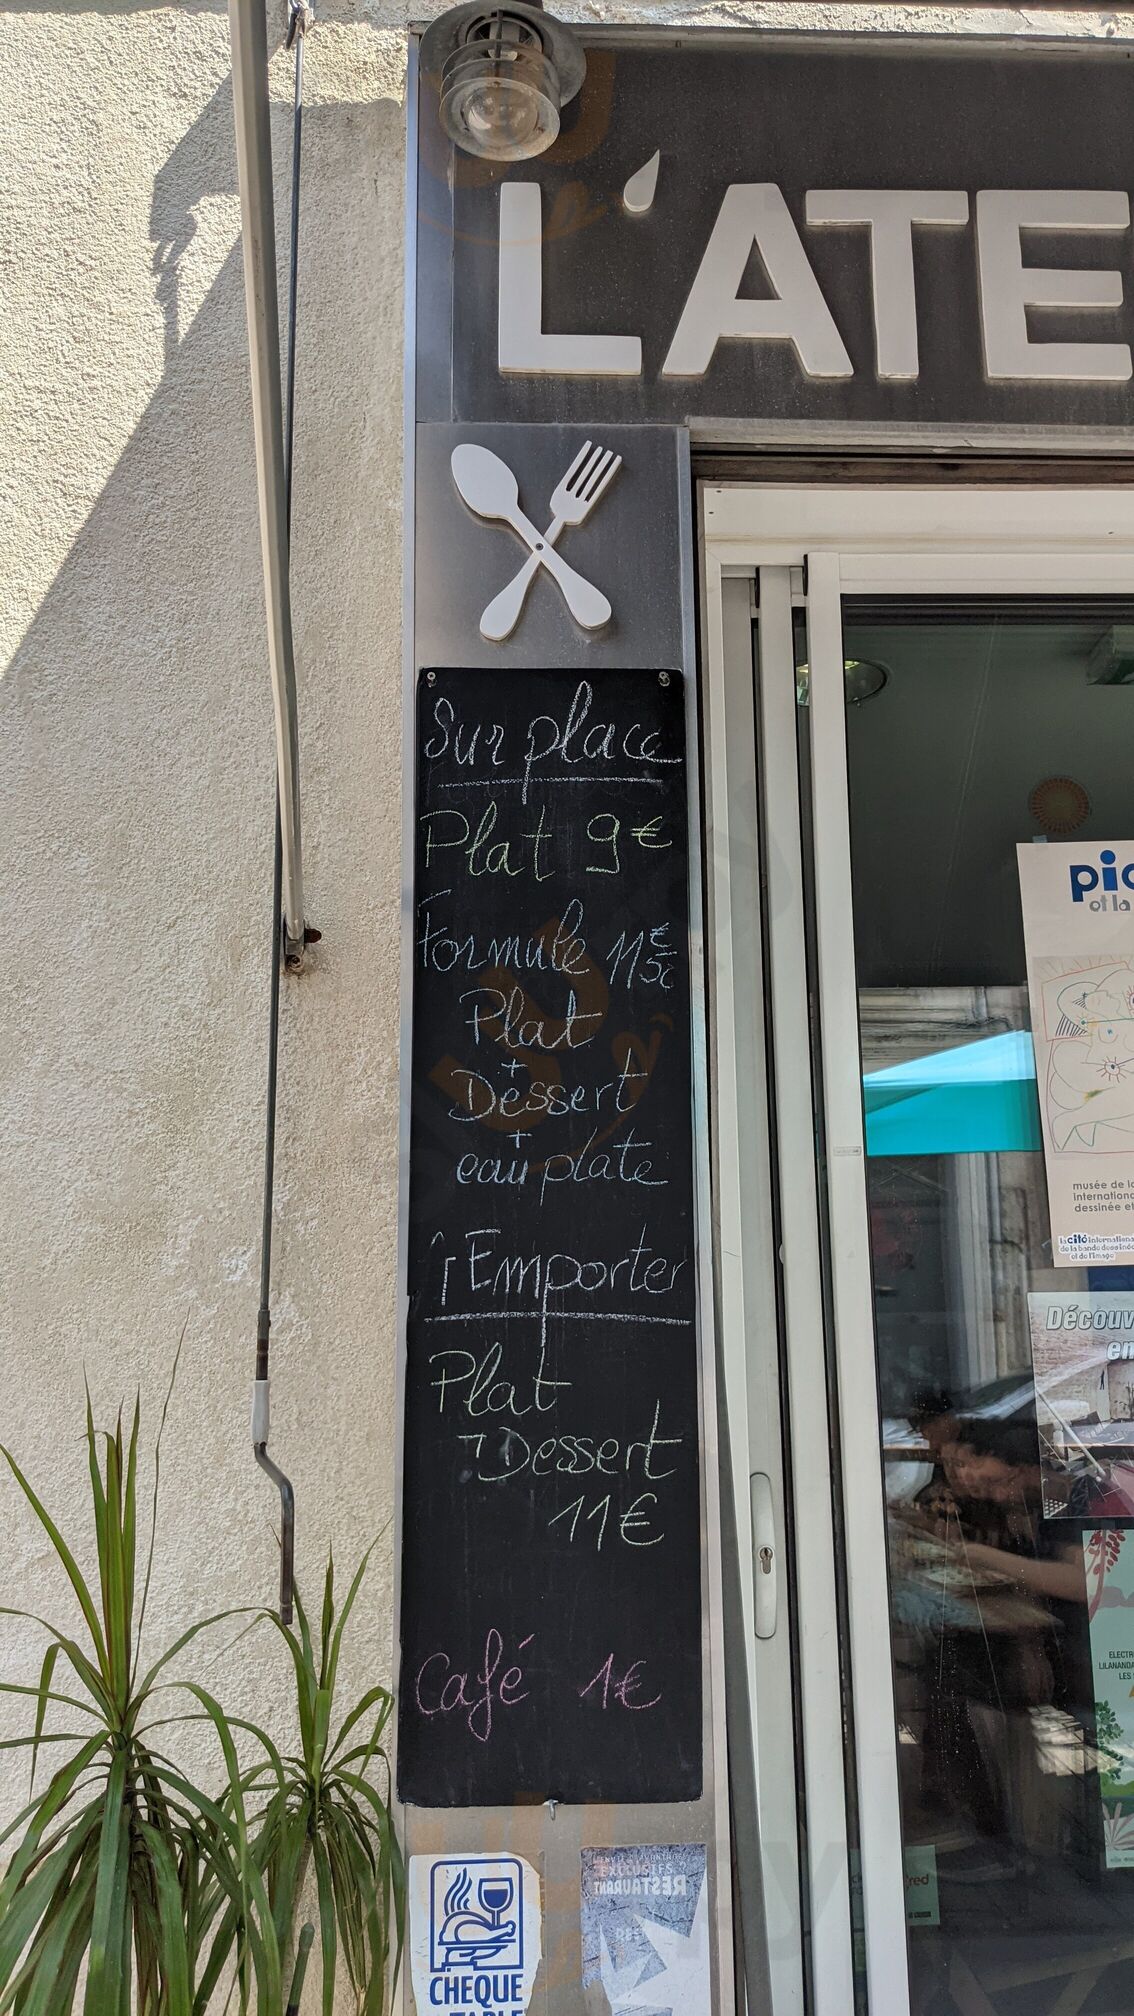 L'ATE
Sur place
Plat 9€
Formule 11€50
Plat
+
Dessert
+
eau plate
Emporter
Plat
+ Dessert
11€
Café 1€
CHEQUE
TABLE
EXCLUSIFS
RESTAURANT
pic
et la
musée de la
internationa
dessinée et
la cité internationa
de la bande dessinée
et de l'image
Découv
en
ELECTR
LILANANDA
LES
red